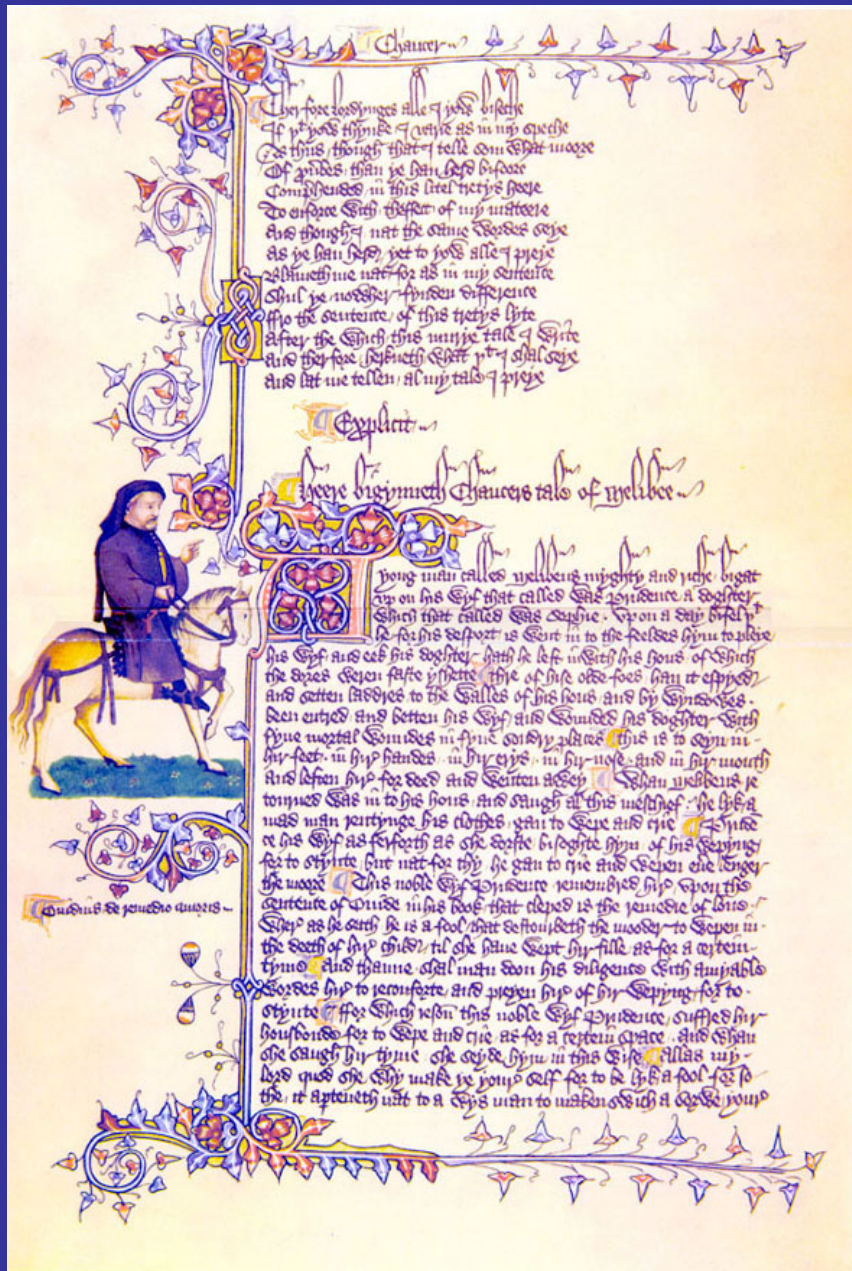 Chaucer
Therfore lordynges alle I yow biseche
If yt yow thynke I varie as in my speche
As thus though that I telle som what moore
Of prouerbes than ye han herd bifoore
Comprehended in this litel tretys heere
To enforce with theffect of my mateere
And though I nat the same wordes seye
As ye han herd yet to yow alle I preye
Blameth me nat for as in my sentence
Shul ye nowher fynden difference
ffro the sentence of this tretys lyte
After the which this murye tale I write
And therfore herkneth what yt I shal seye
And lat me tellen al my tale I preye
Explicit
Heere bigynneth Chaucers tale of Melibee
A yong man called Melibeus myghty and riche bigat
vp on his wyf that called was Prudence a doghter
which that called was Sophie. Vpon a day bifel yt
he for his desport is went in to the feeldes hym to pleye
his wyf and eek his doghter hath he left inwith his hous of which
the dores weren faste yshette thre of hise olde foes han it espyed
and setten laddres to the walles of his hous and by wyndowes
been entred and betten his wyf and wounded his doghter with
fyue mortal woundes in fyue sondry places this is to seyn in
hir feet. in hir handes. in hir erys. in hir nose. and in hir mouth
and leften hir for deed and wenten awey Whan Melibeus re
tourned was in to his hous and saugh al this meschief. he lyk a
mad man rentynge his clothes. gan to wepe and crie Pruden
ce his wyf as ferforth as she dorste bisoghte hym of his wepyng
for to stynte. but nat for thy he gan to crie and wepen euer lenger
the moore This noble wyf Prudence remembred hir vpon the
sentence of Ouide in his book that cleped is the remedie of loue
Wher as he seith he is a fool that destourbeth the mooder to wepen in
the deeth of hir child til she haue wept hir fille as for a certein
tyme And thanne shal man doon his diligence with amyable
wordes hir to reconforte and preyen hir of hir wepyng for to
stynte ffor which reson this noble wyf Prudence suffred hir
housbonde for to wepe and crie as for a certein space. and whan
she saugh hir tyme she seyde hym in this wise Allas my
lord quod she why make ye youre self for to be lyk a fool for so
the it aperteneth nat to a wys man to maken swich a sorwe youre
Ouidius de remedio amoris